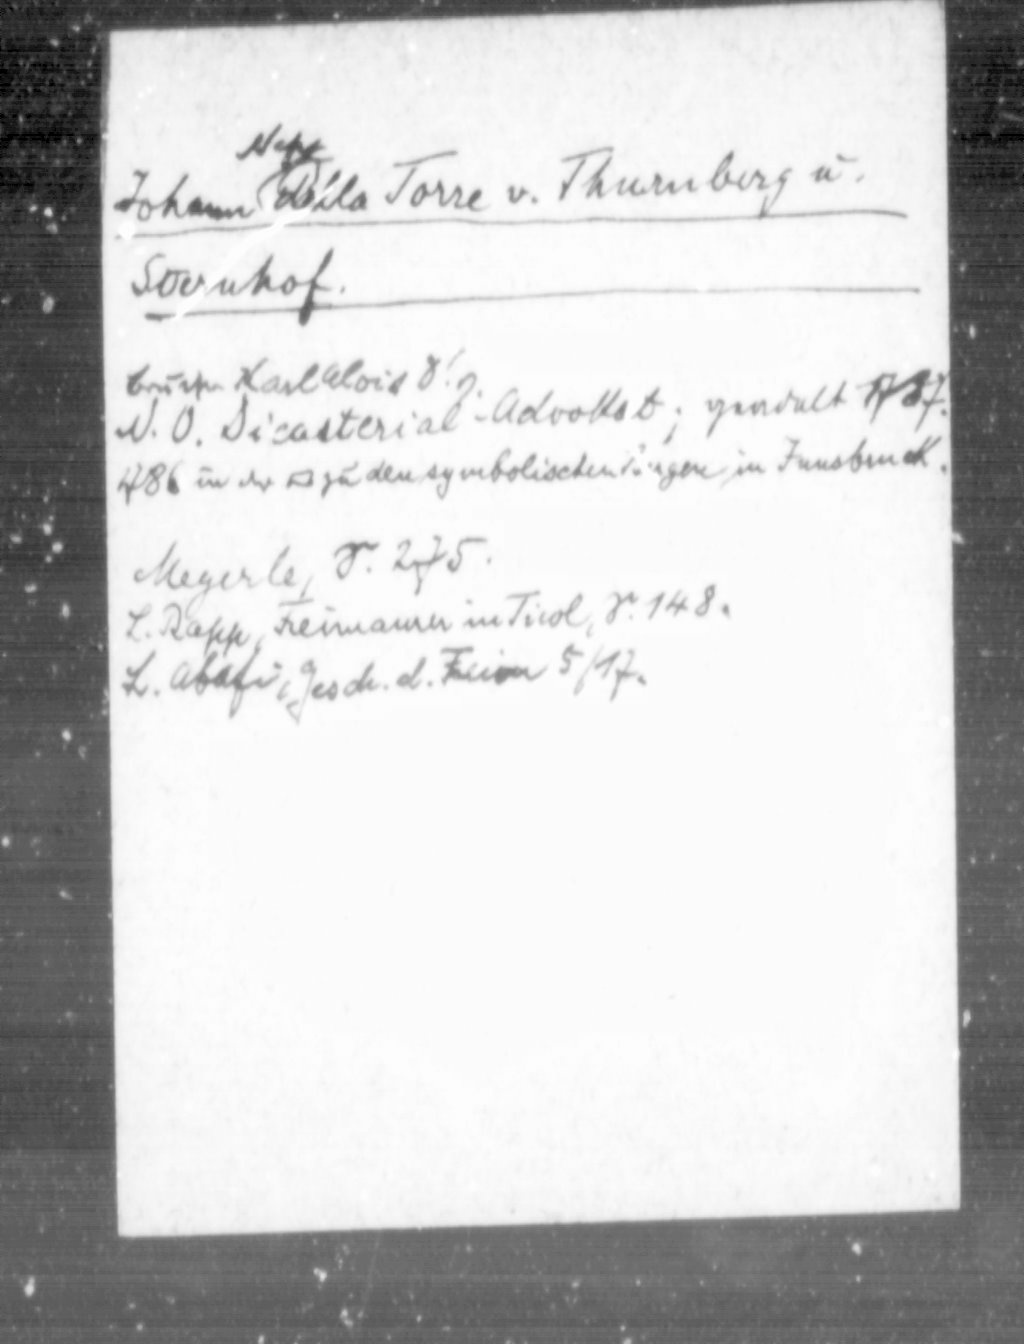 Nepp
Johann Della Torre v. Thurnberg u.
Sternhof.
Karl Alois
N. Ö. Dicasterial-Advokat; 1787.
1786 in der □ zu den symbolischen Bergen in Innsbruck.
Megerle, S. 275.
L. Rapp, Freimaurer in Tirol, S. 148.
L. Abafi, Gesch. d. Freim 5/17.